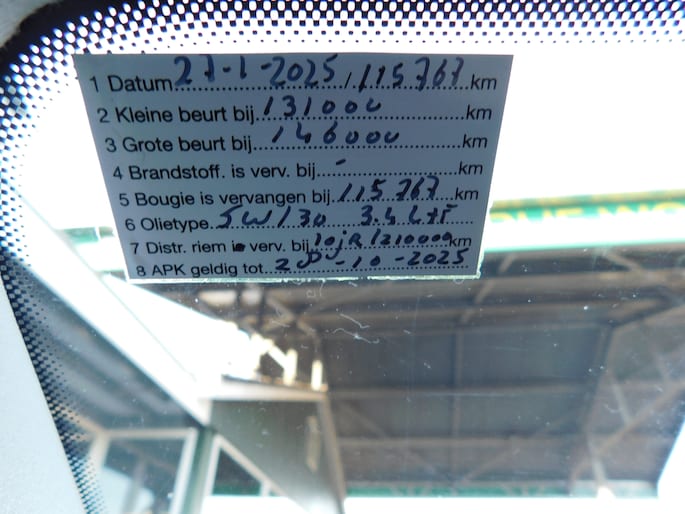 1 Datum 27-1-2025 / 115767 km
2 Kleine beurt bij 131000 km
3 Grote beurt bij 146000 km
4 Brandstoff. is verv. bij - km
5 Bougie is vervangen bij 115767 km
6 Olietype 5W/30 3.4 LTF
7 Distr. riem is verv. bij 10jR/210000 km
8 APK geldig tot -10-2025